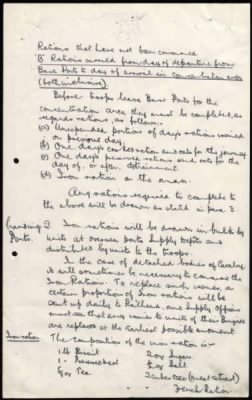 Rations that have not been consumed
(i) Rations issued from day of departure from
Base Ports to day of arrival in concentration area
(both inclusive)
Before troops leave Base Ports for the
concentration area they must be completed, as
regards rations, as follows:-
(a) Unexpended portion of day's rations issued
on previous day.
(b) One day's ration and oats for the journey
(c) One day's preserved rations and oats for the
day of, or after, detrainment
(d) Iron ration on the man.
Any rations required to complete to
the above will be drawn as stated in para 3.
2. Iron rations will be drawn in bulk by
Ports. units at oversea port Supply Depots and
distributed by units to the troops.
In the case of detached bodies of Cavalry,
it will sometimes be necessary to consume the
Iron Ration. To replace such issues, a
certain proportion of Iron rations will be
sent up daily to Railhead, and supply officers
must see that any issues to units of their Brigades
are replaced at the earliest possible moment
Iron ration The composition of the iron ration is:-
1 lb Biscuit 2 oz Sugar
1 lb Preserved ½ oz Salt
⅝ oz Tea 2 cubes